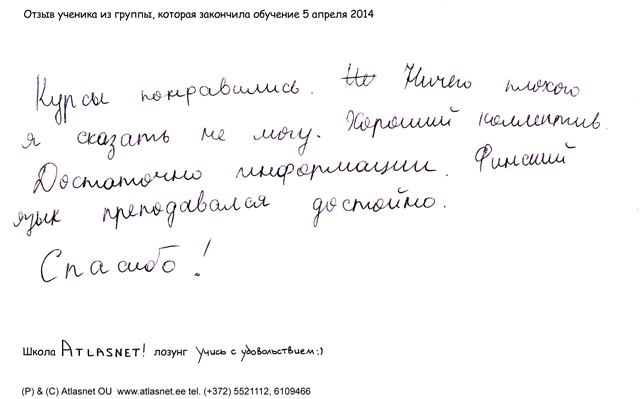 Отзыв ученика из группы, которая закончила обучение 5 апреля 2014
Курсы понравились. Не Ничего плохого
я сказать не могу. Хороший коллектив.
Достаточно информации. Финский
язык преподавался достойно.
Спасибо!
Школа ATLASNET! лозунг Учись с удовольствием:)
(P) & (C) Atlasnet OU www.atlasnet.ee tel. (+372) 5521112, 6109466